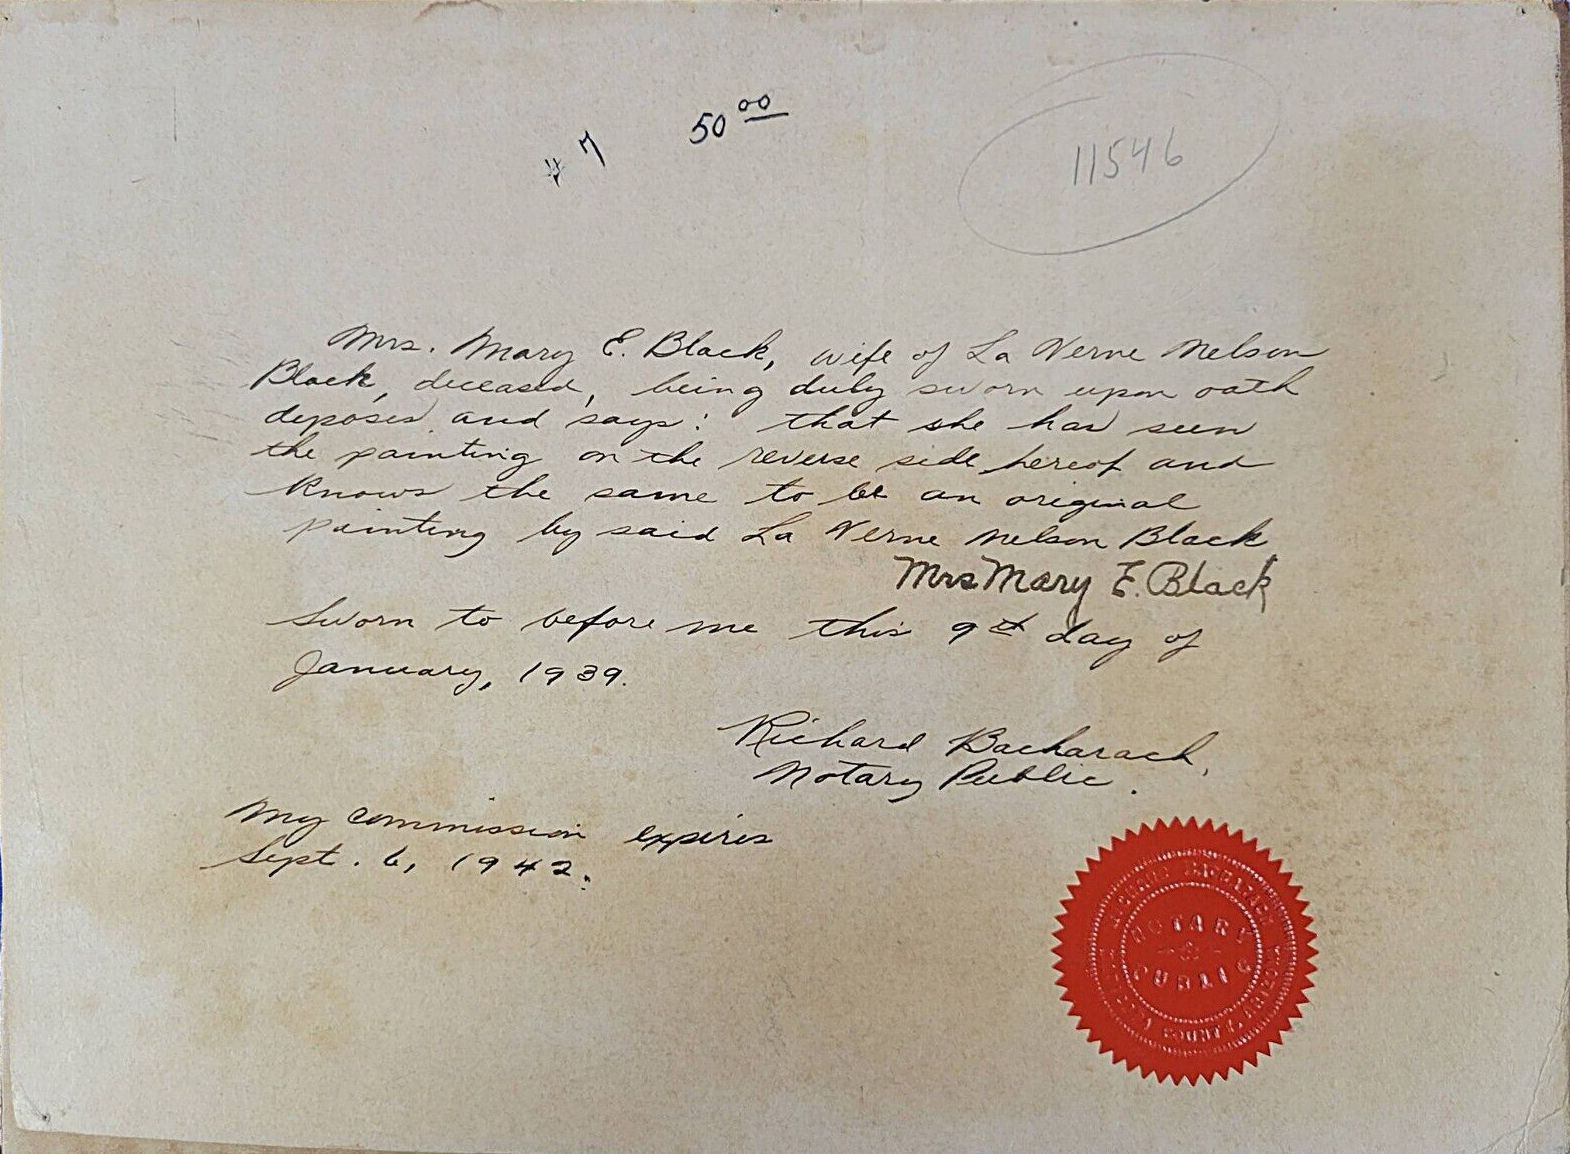 # 7 50 00
11546
Mrs. Mary E. Black, wife of La Verne Nelson
Black, deceased, being duly sworn upon oath
deposes and says: that she has seen
the painting on the reverse side hereof and
knows the same to be an original
painting by said La Verne Nelson Black
Mrs Mary E. Black
Sworn to before me this 9th day of
January, 1939.
Richard Bacharach,
Notary Public.
My commission expires
Sept. 6, 1942.
NOTARY
PUBLIC
COUNTY, ARIZONA